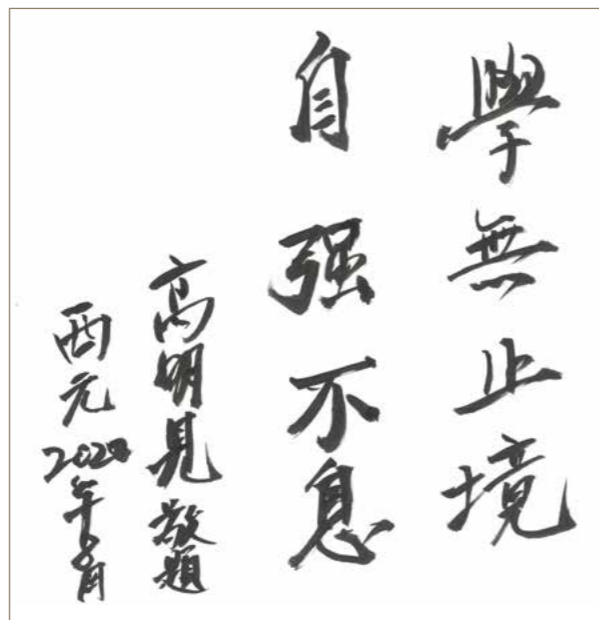 學無止境
自强不息
高明見敬題
西元2020年6月